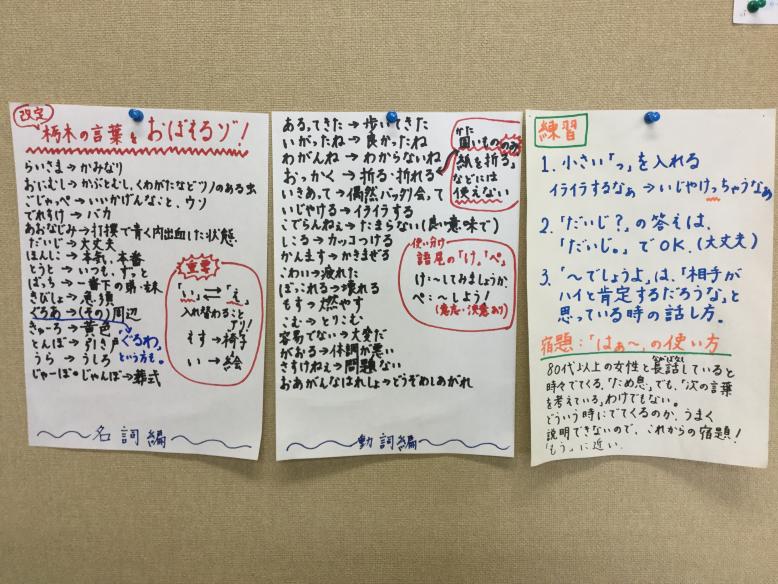 改定
栃木の言葉をおぼえるゾ!
らいさま→かみなり
おにむし→かぶとむし、くわがたなどツノのある虫
ごじゃっぺ→いいかげんなこと、ウソ
でれすけ→バカ
あおなじみ→打撲で青く内出血した状態
だいじ→大丈夫
ほんに→本気、本番
とうと→いつも、ずっと
ばっち→一番下の弟・妹
きびしょ→急須
ぐろあ→(その)周辺
きゃーろ→黄色
とんぼ→引き戸
うら→うしろ
じゃーぼ・じゃんぼ→葬式
ぐるわ。
という方も。
重要
「い」⇄「え」
入れ替わること
アリ!
えす→椅子
い→絵
名詞編
あるってきた→歩いてきた
いがったね→良かったね
わがんね→わからないね
おっかく→折る・折れる
いきあって→偶然バッタリ会って
いじやける→イライラする
こでらんねぇ→たまらない(良い意味で)
しこる→カッコつける
かんます→かきまぜる
こわい→疲れた
ぼっこれる→壊れる
もす→燃やす
こむ→とりこむ
容易でない→大変だ
がおる→体調が悪い
さすけねぇ→問題ない
おあがんなはれしょ→どうぞめしあがれ
かた
固いもののみ
「紙を折る」
などには
使えない
使い分け
語尾の「け」「ぺ」
け:~してみましょうか
ぺ:~しよう!
(意志・決意あり)
動詞編
練習
1. 小さい「っ」を入れる
イライラするなぁ→いじやけっちゃうなぁ
2.「だいじ?」の答えは、
「だいじ。」でOK.(大丈夫)
3.「~でしょうよ」は、「相手が
ハイと肯定するだろうな」と
思っている時の話し方。
宿題:「はぁ~」の使い方
ながばなし
80代以上の女性と長話していると
時々でてくる。「ため息」でも、「次の言葉
を考えている」わけでもない。
どういう時にでてくるのか、うまく
説明できないので、これからの宿題!
「もう」に近い.